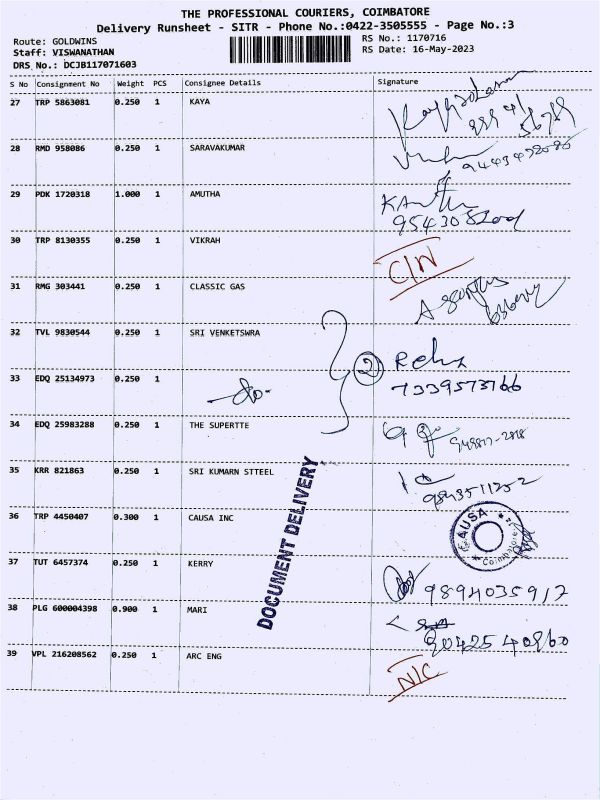 THE PROFESSIONAL COURIERS, COIMBATORE
Delivery Runsheet - SITR - Phone No.:0422-3505555 - Page No.:3
Route: GOLDWINS RS No.: 1170716
Staff: VISWANATHAN RS Date: 16-May-2023
DRS No.: DCJB117071603
S No Consignment No Weight PCS Consignee Details Signature
27 TRP 5863081 0.250 1 KAYA
28 RMD 958086 0.250 1 SARAVAKUMAR
29 PDK 1720318 1.000 1 AMUTHA
30 TRP 8130355 0.250 1 VIKRAH
C/N
31 RMG 303441 0.250 1 CLASSIC GAS
32 TVL 9830544 0.250 1 SRI VENKETSWRA
2
33 EDQ 25134973 0.250 1 -do- 7339573766
34 EDQ 25983288 0.250 1 THE SUPERTTE
35 KRR 821863 0.250 1 SRI KUMARN STTEEL 9843511252
36 TRP 4450407 0.300 1 CAUSA INC
CAUSA
Coimbatore
37 TUT 6457374 0.250 1 KERRY 9894035917
38 PLG 600004398 0.900 1 MARI
39 VPL 216208562 0.250 1 ARC ENG
N/C
DOCUMENT DELIVERY